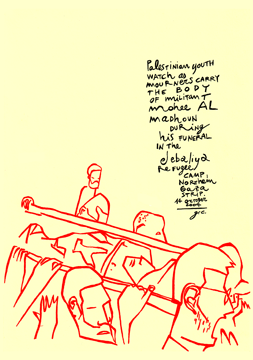 Palestinian YOUTH
WATCH as
mourners CARRY
THE BODY
OF militant
mohee AL
MADHOUN
DURING
his FUNERAL
IN the
Jebaliya
Refugee
CAMP,
Northern
Gaza
STRIP.